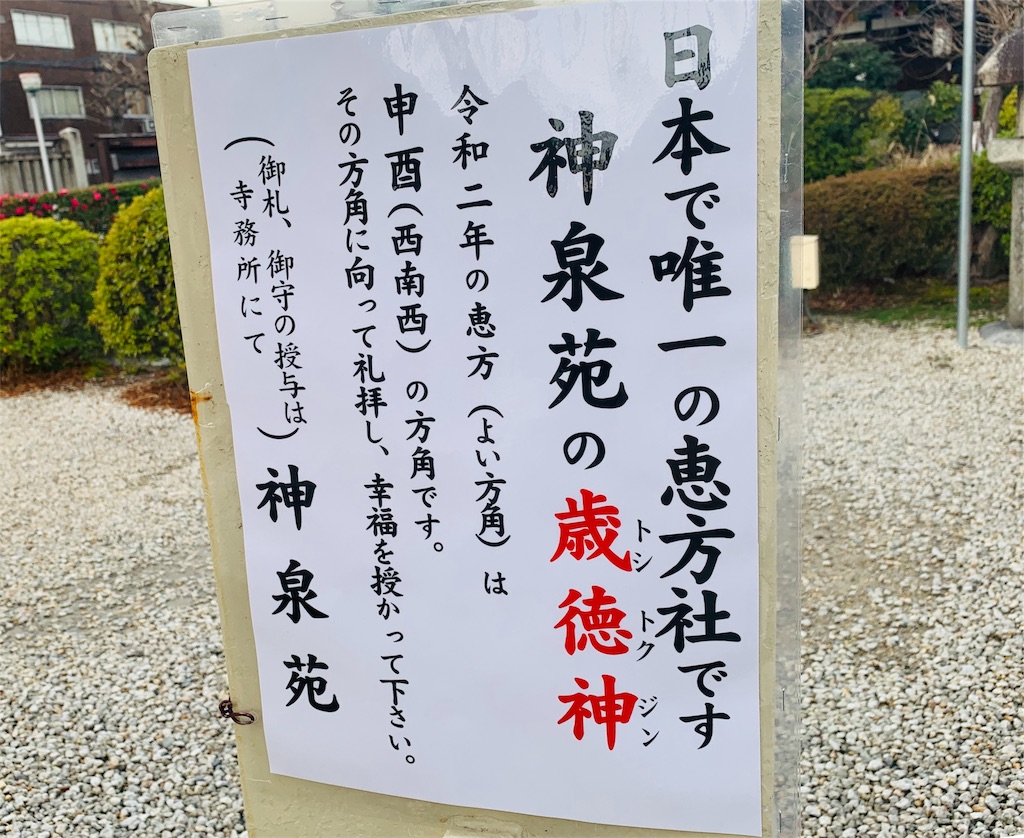 日本で唯一の恵方社です
神泉苑の歳徳神
トシ トク ジン
令和二年の恵方(よい方角)は
申酉(西南西)の方角です。
その方角に向って礼拝し、幸福を授かって下さい。
(御札、御守の授与は
寺務所にて)
神泉苑